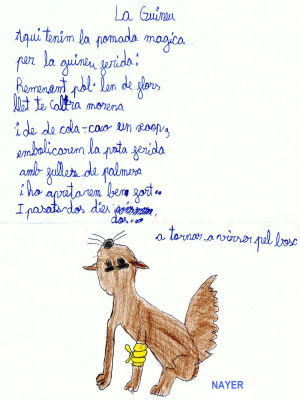 La Guineu
Aqui tenim la pomada magica
per la guineu ferida:
Remenant pol·len de flors
llet te Cabra morena
i de de cola-cao un xarop,
embolicarem la pota ferida
amb fulles de palmera
i ho apretarem ben fort..
I pasats dos dies
dos..
a tornar a virser pel bosc
NAYER